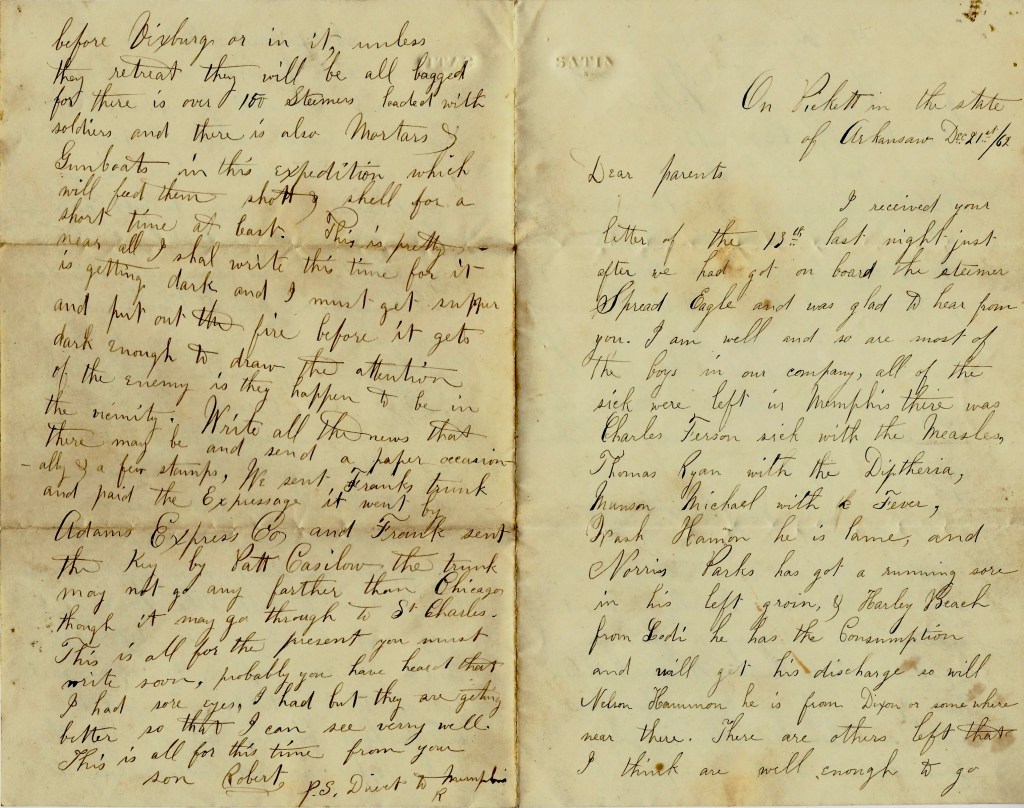 before Vixburg or in it, unless
they retreat they will be all bagged
for there is over 100 Steemers loaded with
soldiers and there is also Mortars &
Gunboats in this expedition which
will feed them shott & shell for a
short time at least. This is pretty
near all I shal write this time for it
is getting dark and I must get supper
and put out the fire before it gets
dark enough to draw the attention
of the enemy is they happen to be in
the vicinity. Write all the news that
there may be and send a paper occasion-
-ally & a few stamps, We sent Franks trunk
and paid the Expressage it went by
Adams Express Co, and Frank sent
the Key by Patt Casilow the trunk
may not go any farther than Chicago
though it may go through to St Charles.
This is all for the present you must
write soon, probably you have heard that
I had sore eyes, I had but they are geting
better so that I can see verry well.
This is all for this time from your
son Robert
P.S. Direct to Memphis
SATIN
On Pickett in the state
of Arkansaw Dec 21st/62
Dear parents
I received your
letter of the 13th last night just
after we had got on board the steemer
Spread Eagle and was glad to hear from
you. I am well and so are most of
the boys in our company, all of the
sick were left in Memphis there was
Charles Ferson sick with the Measles,
Thomas Ryan with the Diptheria,
Munson Michael with Fever,
Hamon he is lame, and
Norris Parks has got a running sore
in his left groin, & Harley Beach
from Lodi he has the Consumption
and will get his discharge so will
Nelson Hammon he is from Dixon or some where
near there. There are others left that
I think are well enough to go